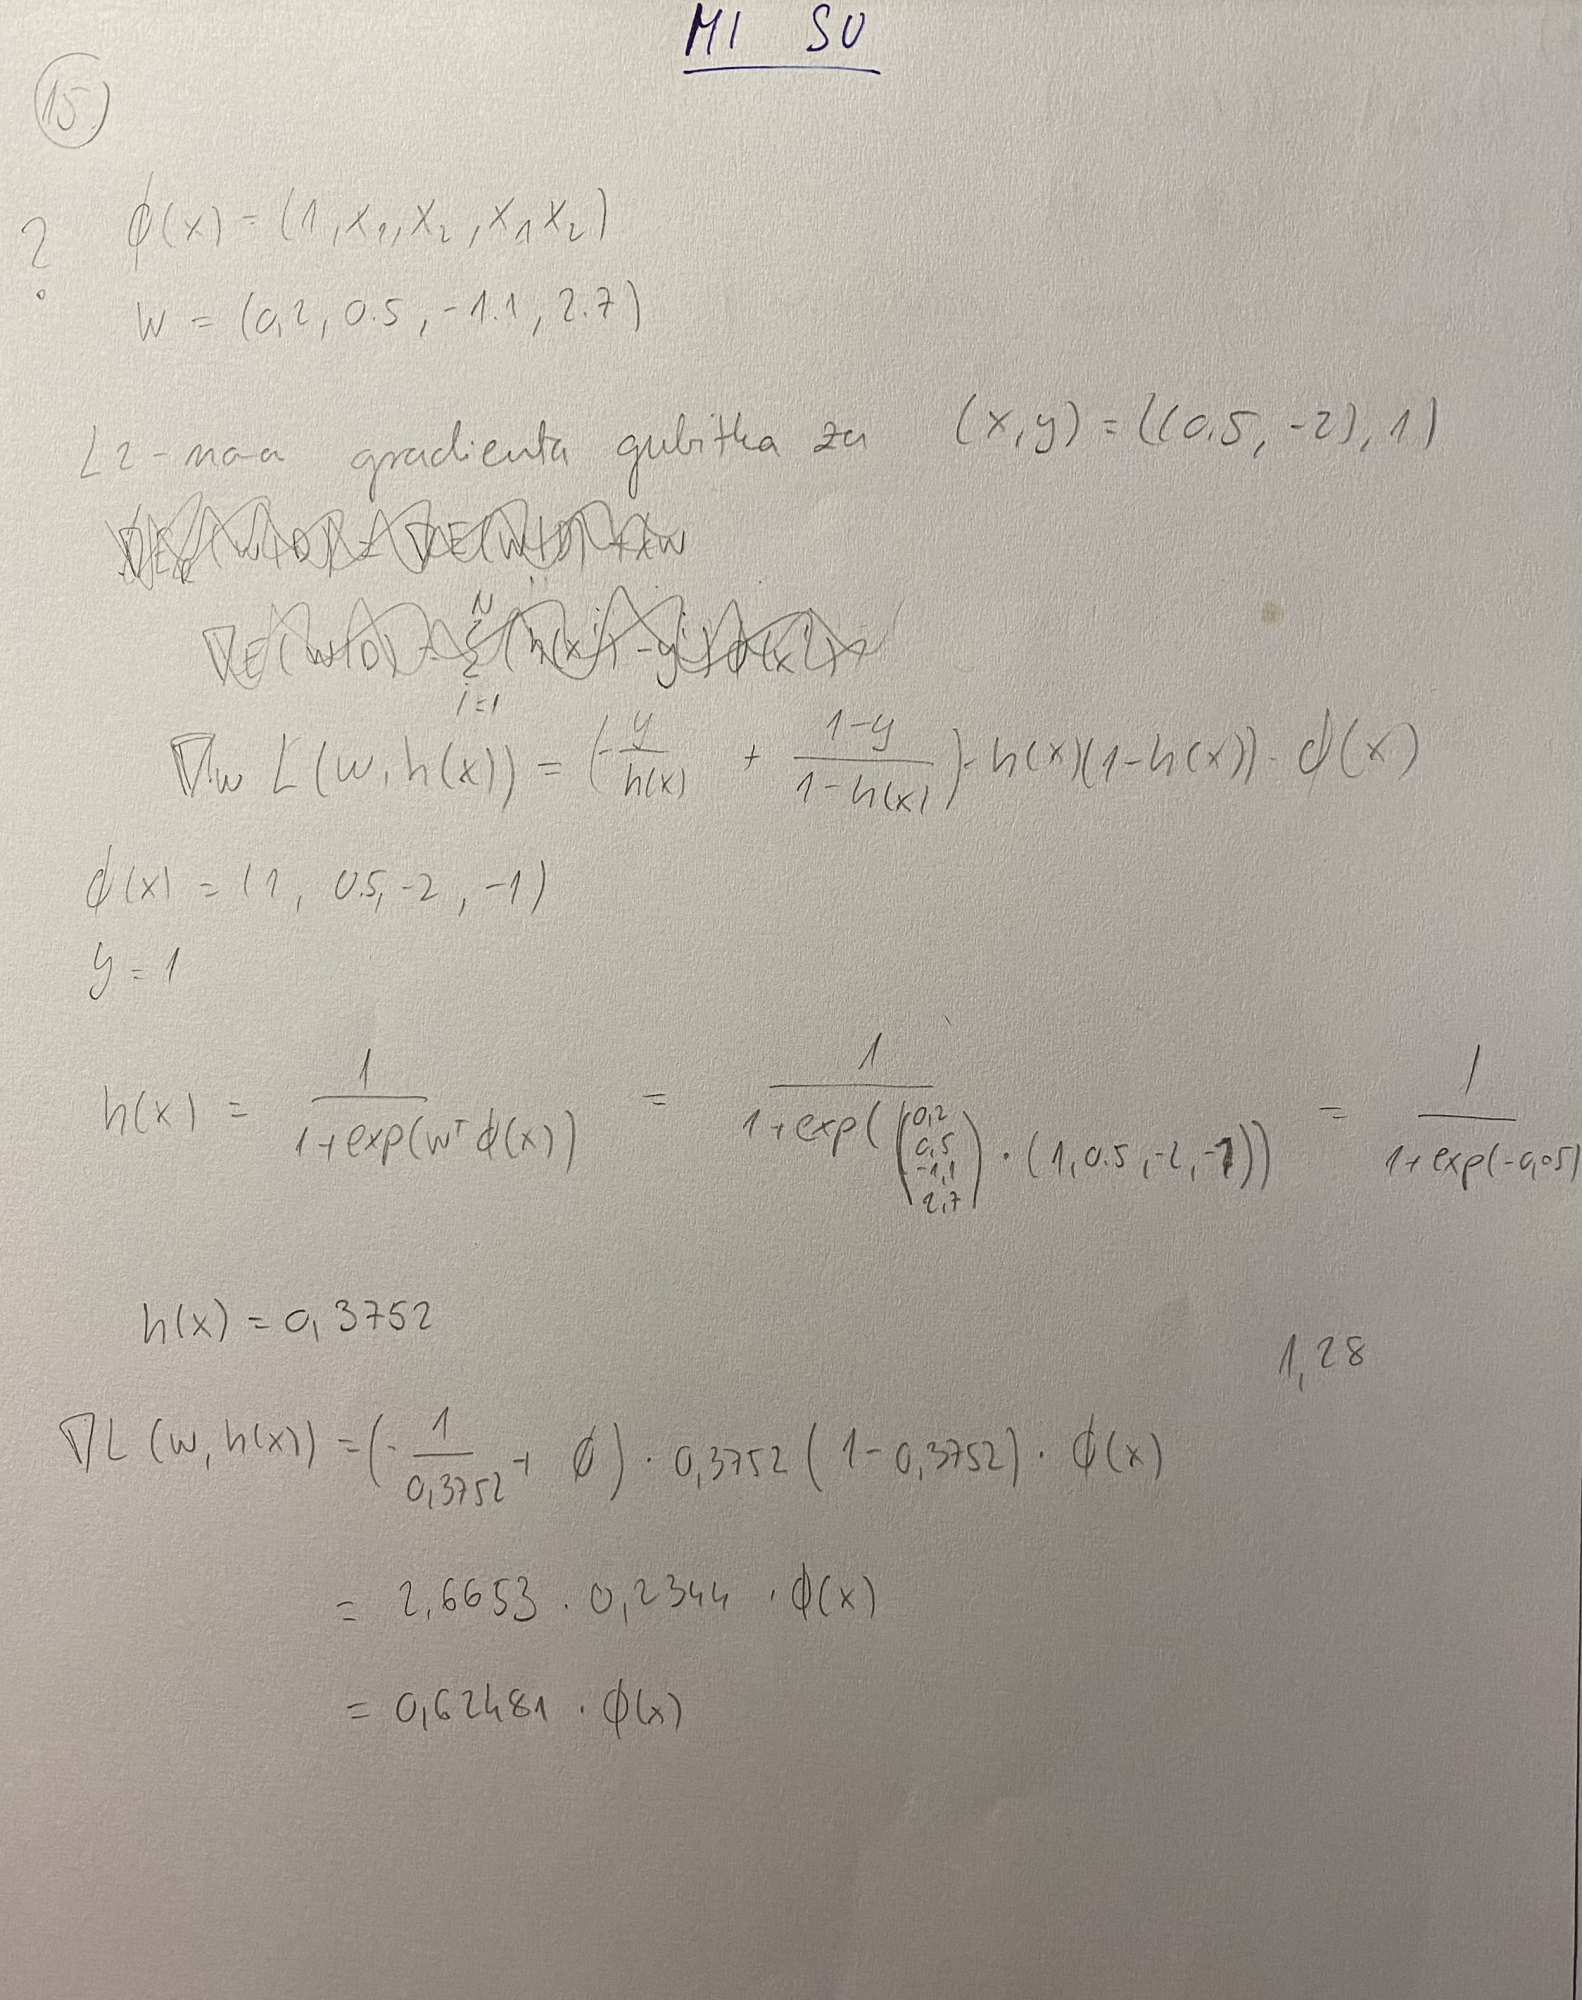 MI SU
15.
?
ϕ(x) = (1, x₁, x₂, x₁x₂)
w = (0,2, 0.5, -1.1, 2.7)
L2-na-a gradienta gubitka za (x,y) = ((0.5, -2), 1)
∇E(w|D) = Σ_{i=1}^{N} (h(xⁱ) - yⁱ) ϕ(xⁱ)
∇w L(w, h(x)) = (- y/h(x) + (1-y)/(1-h(x))) · h(x)(1-h(x)) · ϕ(x)
ϕ(x) = (1, 0.5, -2, -1)
y = 1
h(x) = 1/(1+exp(wᵀϕ(x))) = 1/(1+exp((0,2 0,5 -1,1 2,7) · (1, 0.5, -2, -1))) = 1/(1+exp(-0,05)
h(x) = 0,3752
1,28
∇L(w, h(x)) = (- 1/0,3752 + ϕ) · 0,3752 (1 - 0,3752) · ϕ(x)
= 2,6653 · 0,2344 · ϕ(x)
= 0,62481 · ϕ(x)